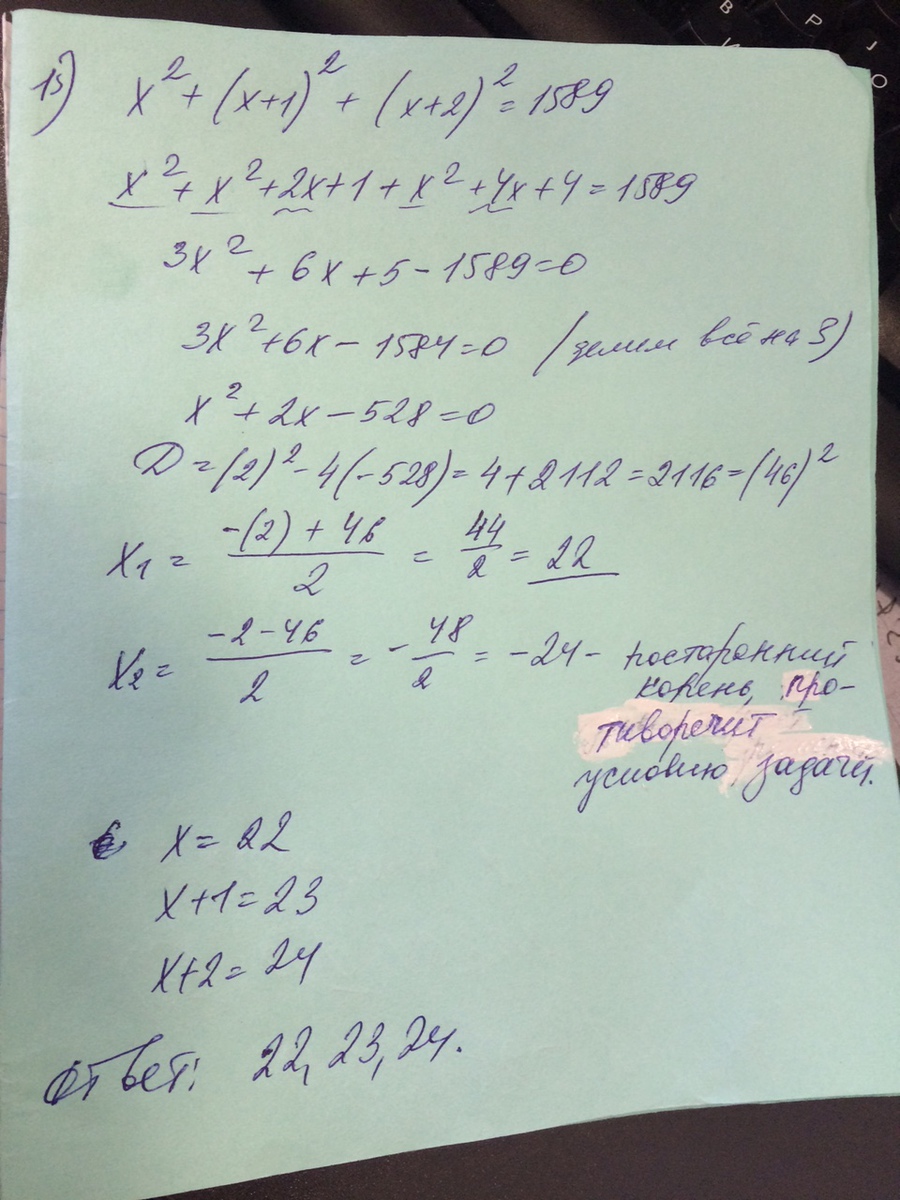 15) x² + (x+1)² + (x+2)² = 1589
x² + x² + 2x + 1 + x² + 4x + 4 = 1589
3x² + 6x + 5 - 1589 = 0
3x² + 6x - 1584 = 0 (делим всё на 3)
x² + 2x - 528 = 0
D = (2)² - 4(-528) = 4 + 2112 = 2116 = (46)²
x₁ = (-(2) + 46)/2 = 44/2 = 22
x₂ = (-2-46)/2 = -48/2 = -24 - постаронний
корень, про-
тиворечит
условию задачи.
x = 22
x+1 = 23
x+2 = 24
Ответ: 22, 23, 24.